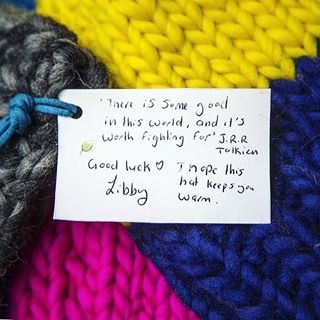 'There is some good
in this world, and it's
worth fighting for' J.R.R
Tolkien
Good luck ♡
Libby
I hope this
hat keeps you
warm.